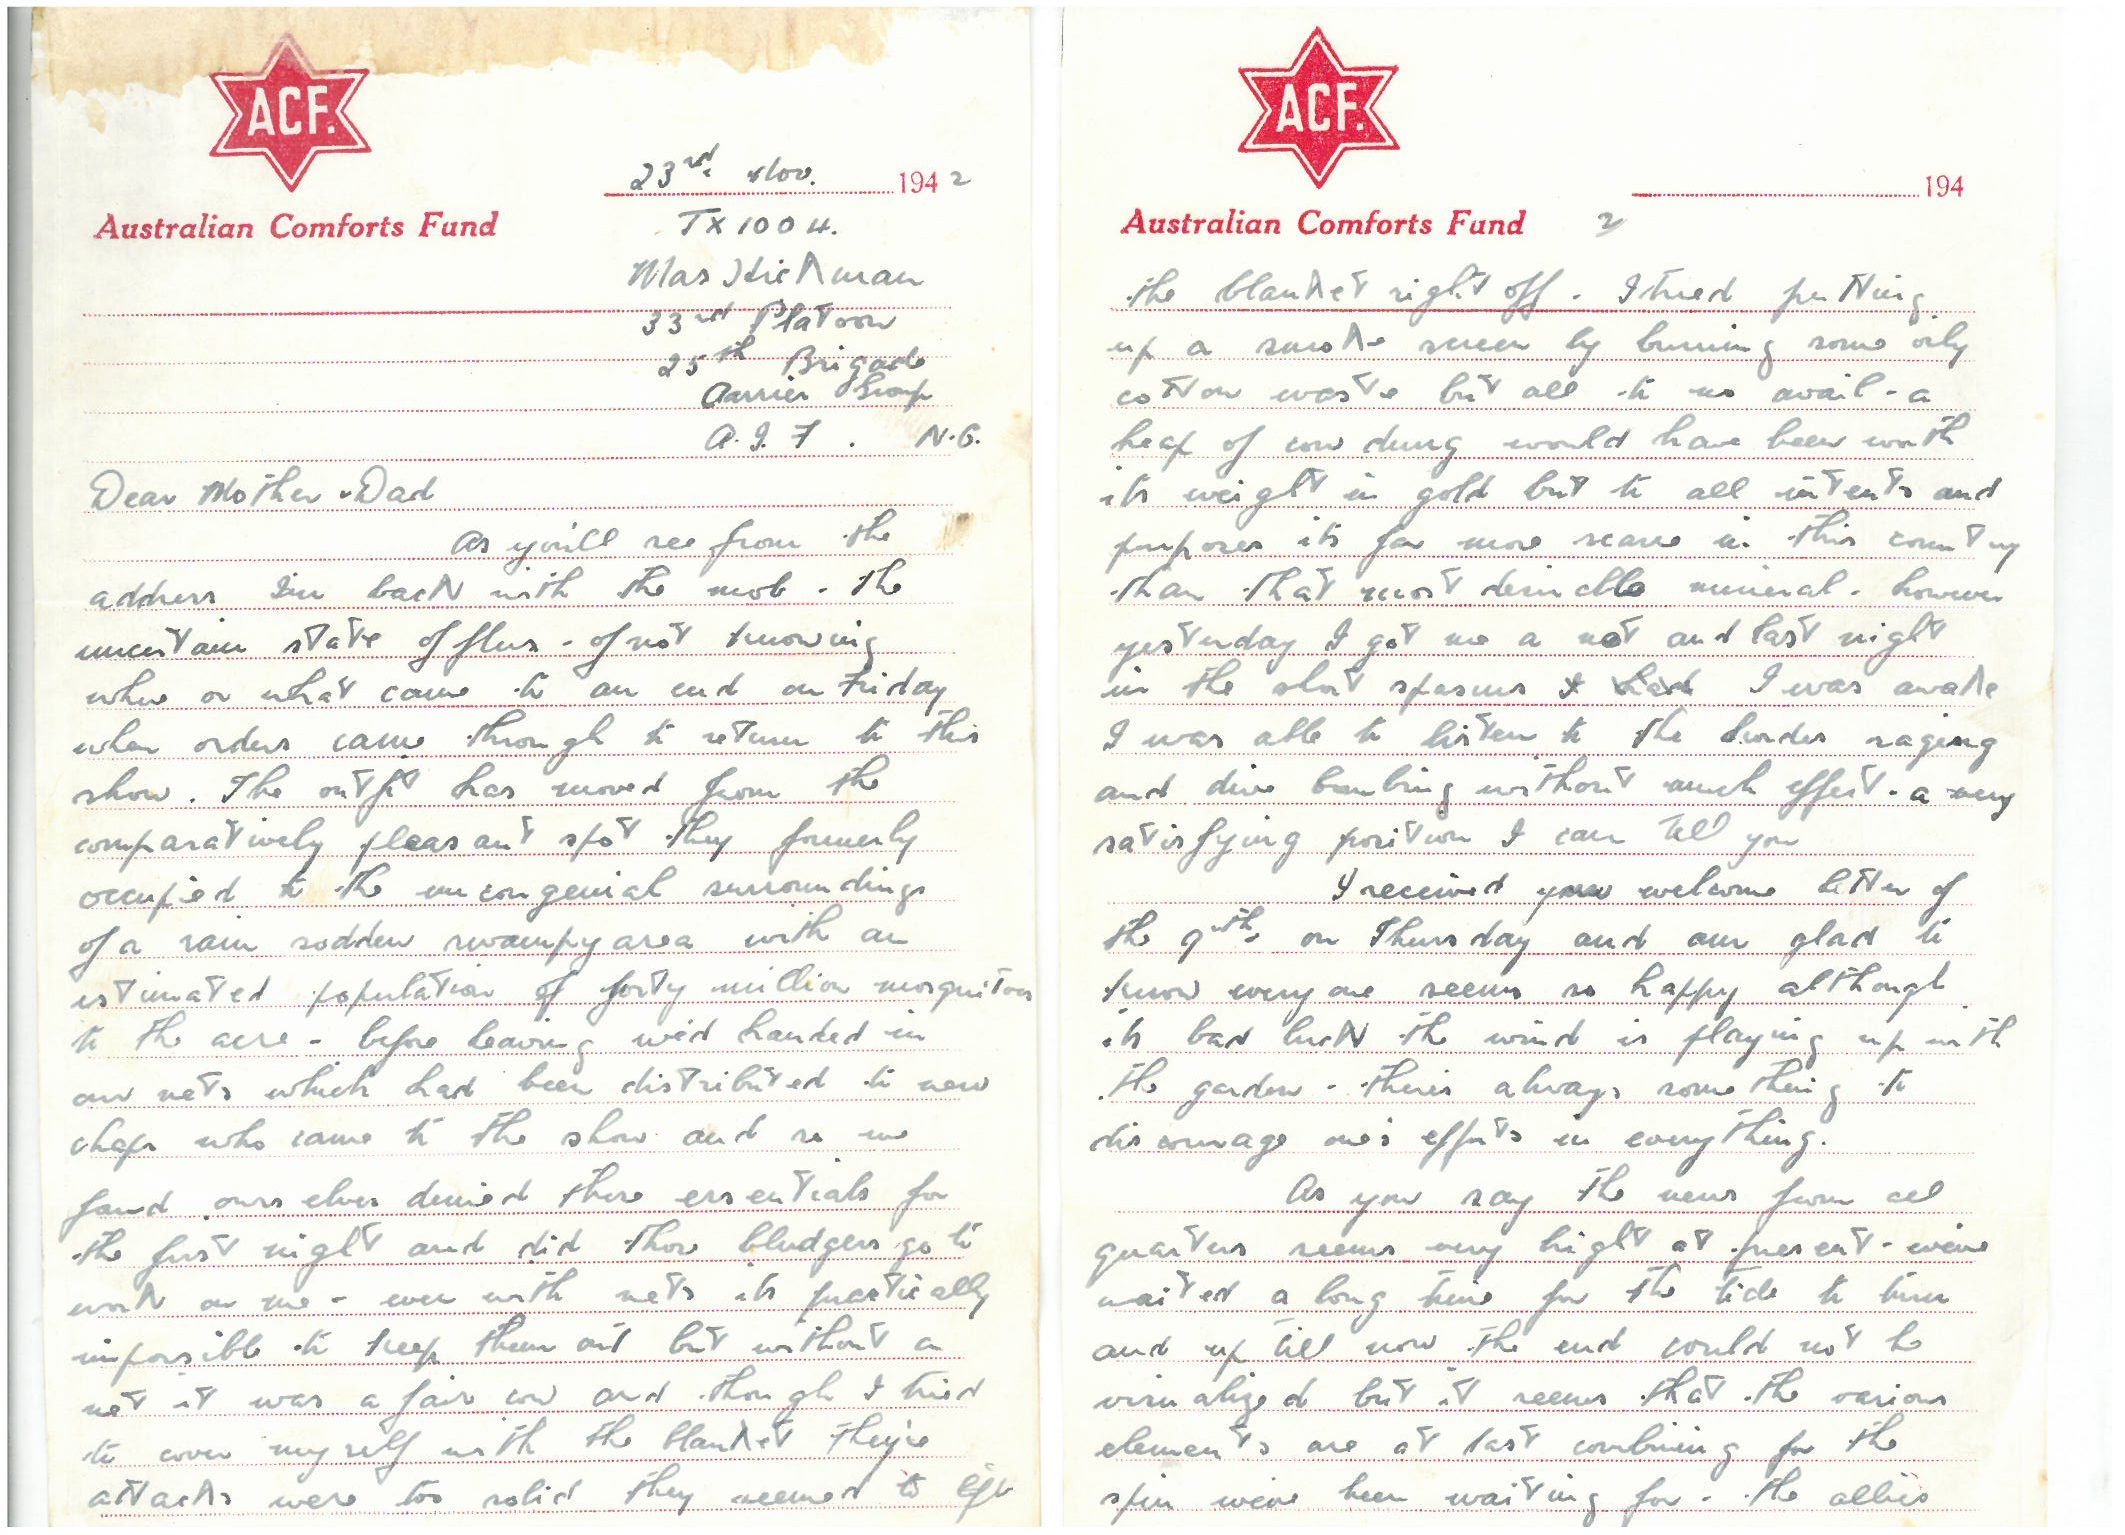 ACF.
23rd Nov. 1942
Australian Comforts Fund
TX1004.
Mas Hickman
33rd Platoon
25th Brigade
Carrier Group
A.I.F. N.G.
Dear Mother & Dad
As you'll see from the
address I'm back with the mob - the
uncertain state of flux - of not knowing
when or what came to an end on Friday
when orders came through to return to this
show. The outfit has moved from the
comparatively pleasant spot they formerly
occupied to the uncongenial surroundings
of a rain sodden swampy area with an
estimated population of forty million mosquitoes
to the acre - before leaving we'd handed in
our nets which had been distributed to new
chaps who came to the show and so we
found ourselves denied these essentials for
the first night and did those bludgers go to
work on me - even with nets its practically
impossible to keep them out but without a
net it was a fair cow and though I tried
to cover myself with the blanket they're
attacks were too solid they seemed to lift
ACF.
194
Australian Comforts Fund 2
the blanket right off. I tried putting
up a smoke screen by burning some oily
cotton waste but all to no avail - a
heap of cow dung would have been worth
its weight in gold but to all intents and
purposes its far more scarce in this country
than that most desirable mineral - however
yesterday I got me a net and last night
in the short spasms I was awake
I was able to listen to the raging
and dive bombing without much effect - a very
satisfying position I can tell you
I received your welcome letter of
the 9th on Thursday and am glad to
know everyone seems so happy although
its bad luck the wind is playing up with
the garden - there's always something to
discourage one's efforts in everything.
As you say the news from all
quarters seems very bright at present - we've
waited a long time for the tide to turn
and up till now the end could not be
visualized but it seems that the various
elements are at last combining for the
spin we've been waiting for - the allies